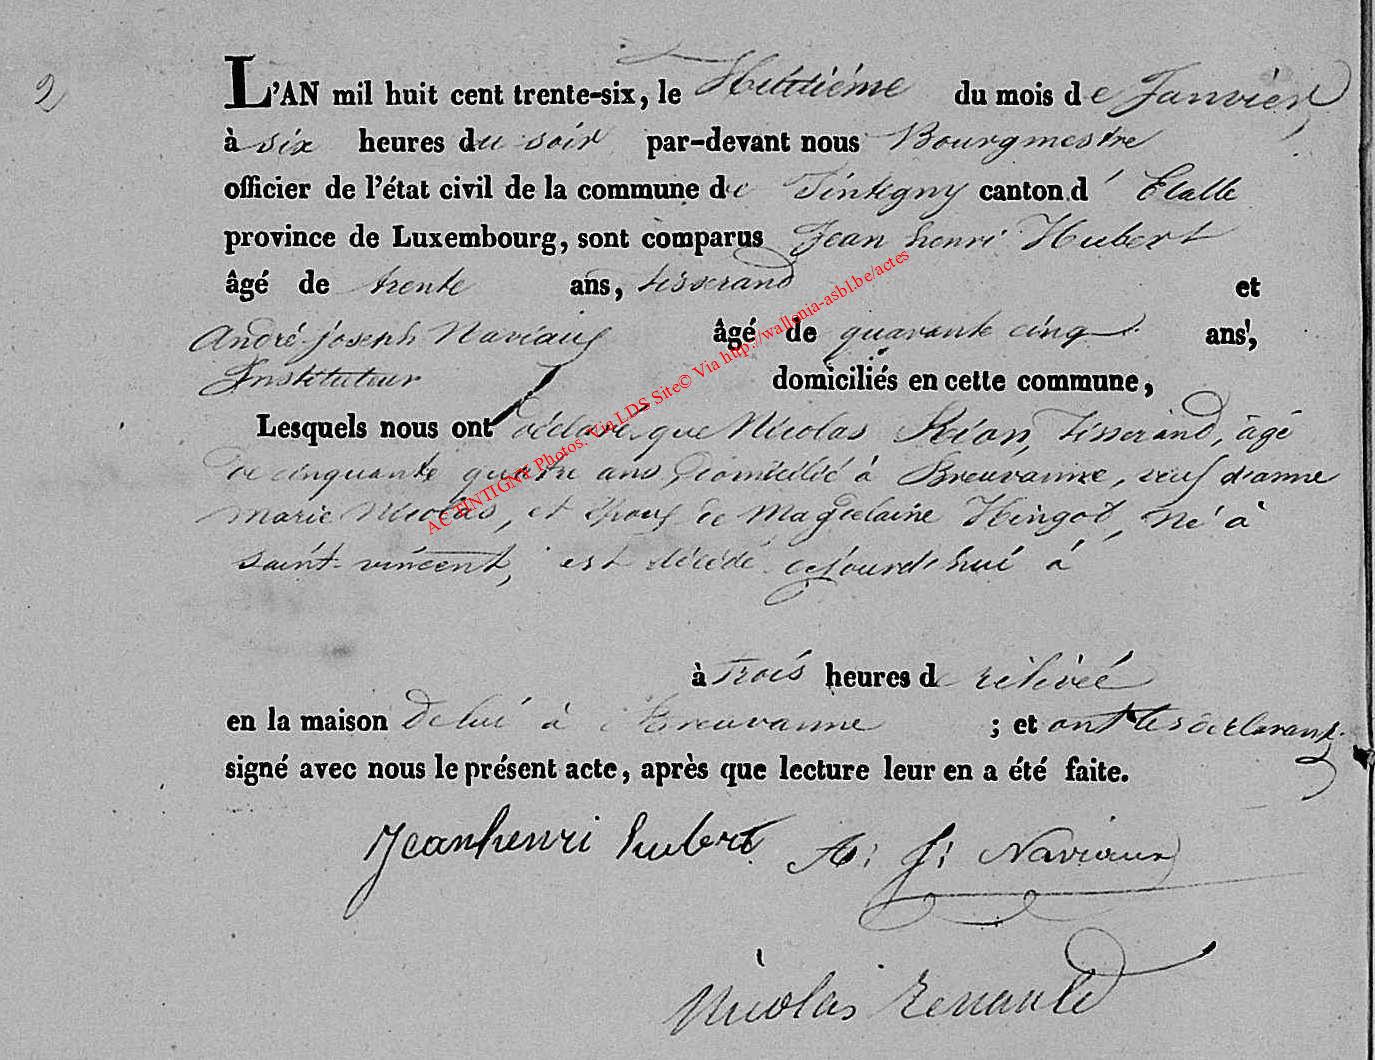 2
L'AN mil huit cent trente-six, le Huitiéme du mois de Janvier
à six heures du soir par-devant nous Bourgmestre
officier de l'état civil de la commune de Tintigny canton d' Etalle
province de Luxembourg, sont comparus Jean henri Hubert
âgé de trente ans, tisserand et
André-joseph Naviaux âgé de quarante cinq ans,
Instituteur domiciliés en cette commune,
Lesquels nous ont déclaré que Nicolas Tisserand, âgé
de cinquante quatre ans Domicilié à Breuvanne, veuf d'anne
marie Nicolas, et Epoux de Magdelaine Hingot, Né à
saint-vincent, est décédé cejourd'hui à
à Trois heures de relivéé
en la maison De lui à Breuvanne ; et ont les declarants
signé avec nous le présent acte, après que lecture leur en a été faite.
Jeanhenri hubert A: J: Naviaux
Nicolas Renauld
AC TINTIGNY Photos. Via LDS Site© Via http://wallonia-asbl.be/actes